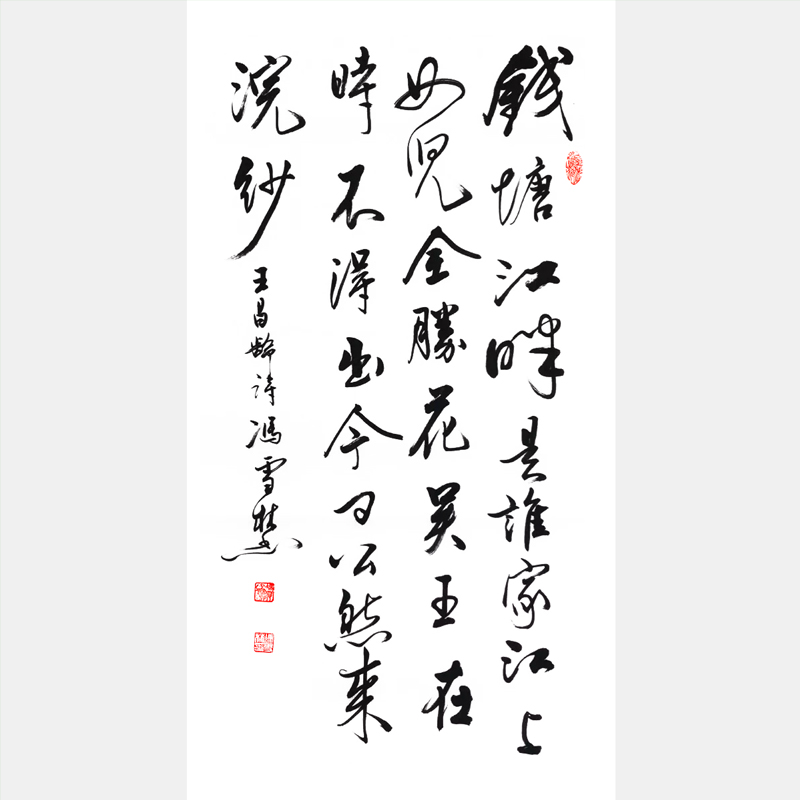 錢塘江畔是誰家江上
女兒全勝花吴王在
時不得出今日公然來
浣紗
王昌齡詩馮雪林書